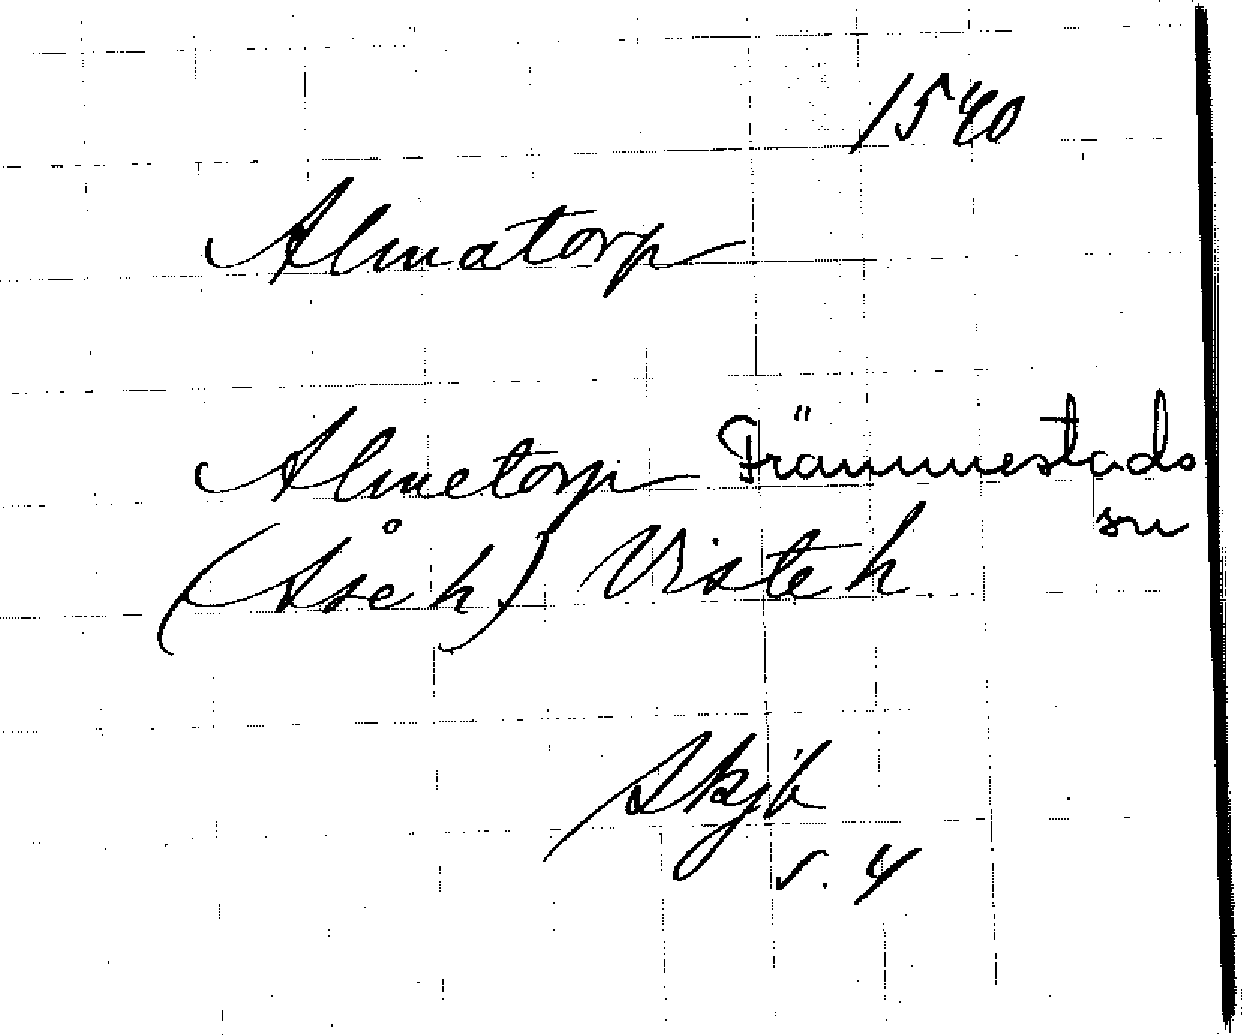 1540
Almatorp
Almetorp Främmestads
sn
(Åse h) Viste h.
Skjb
s. 4